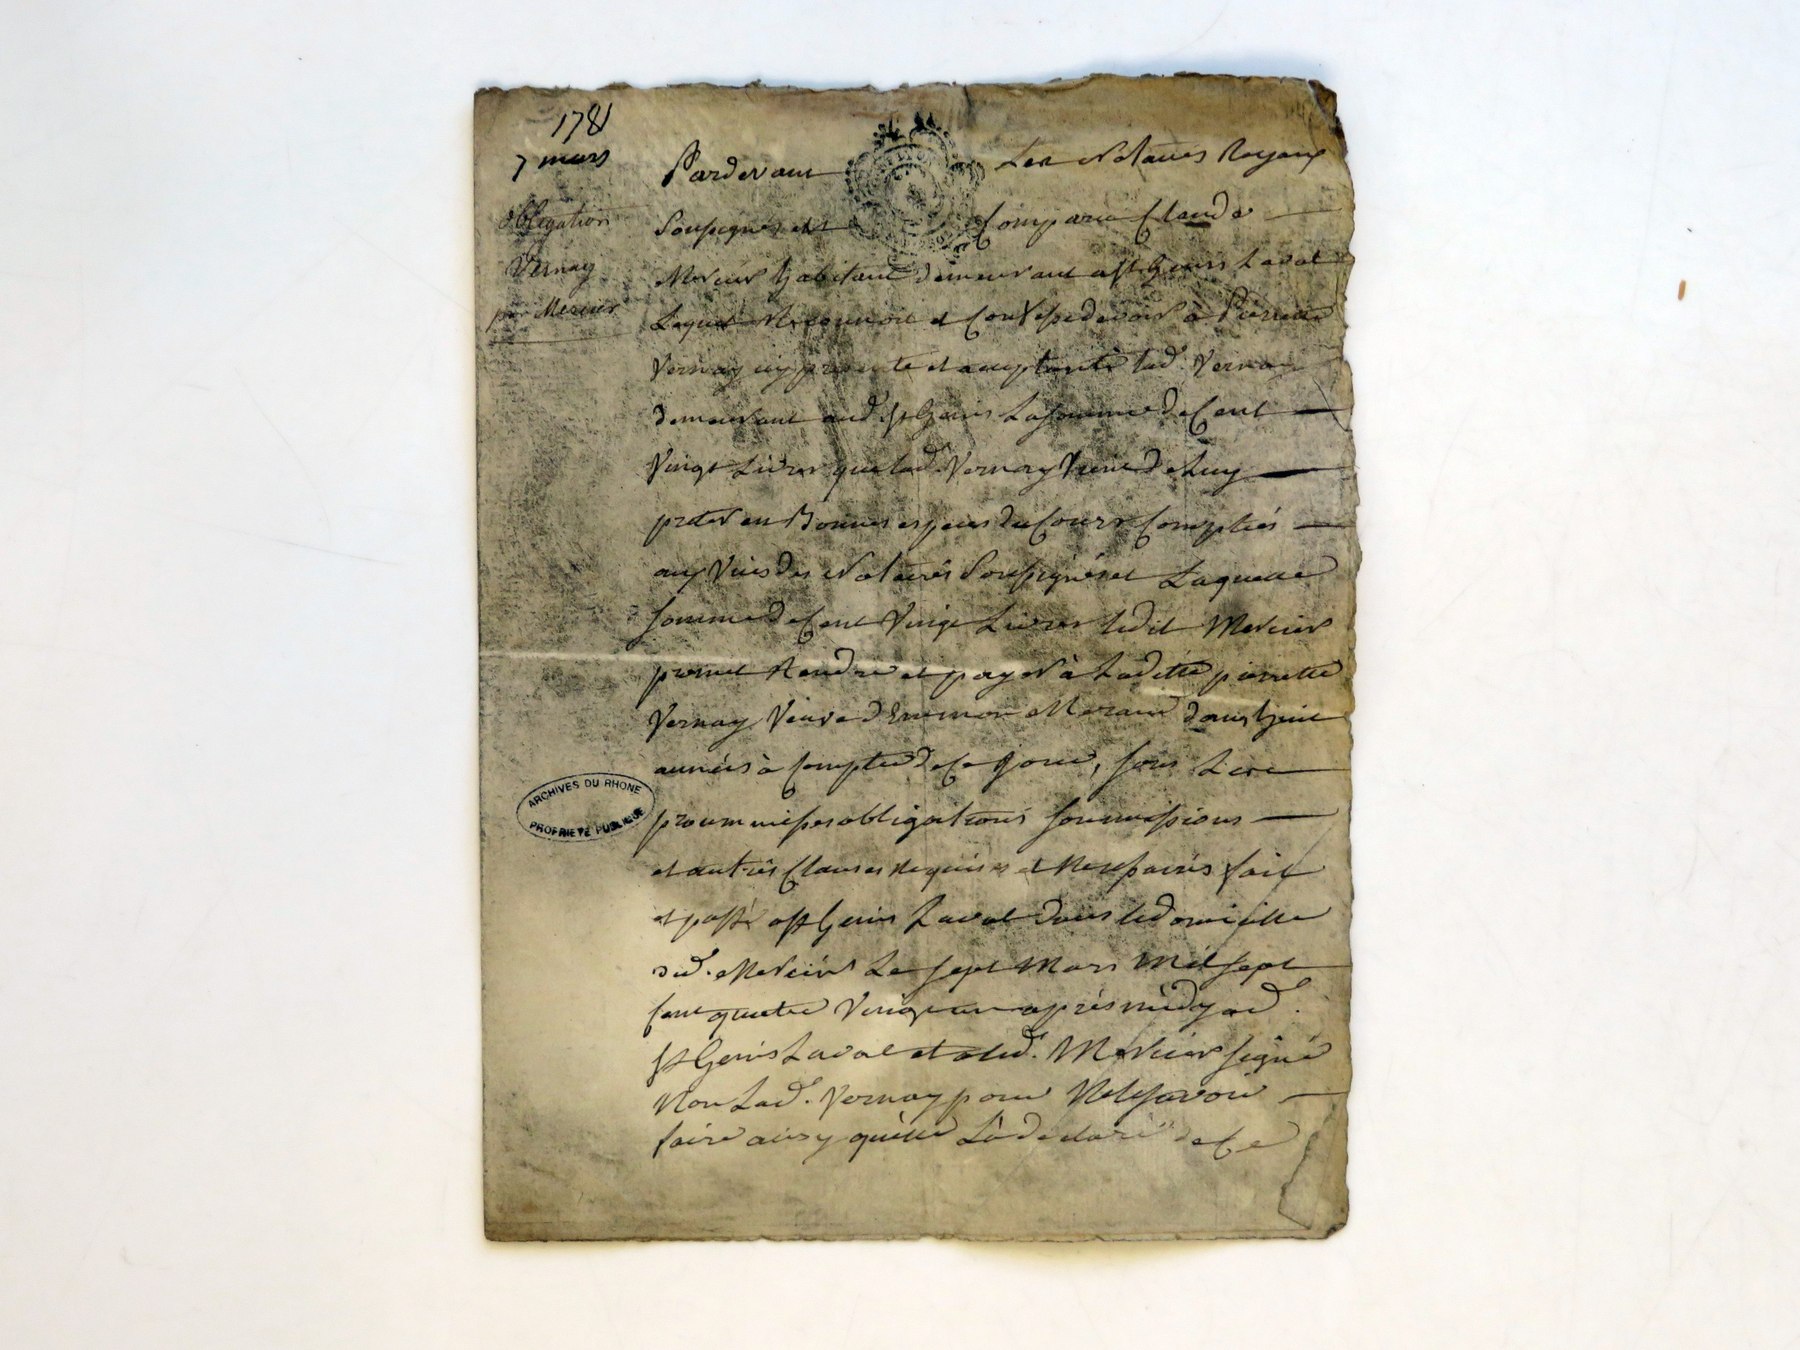 1781
7 mars
obligation
Vernay
par Mercier
Pardevant Les Notaires Royaux
Soussignés et Comparu Claude
Mercier habitant demeurant a St Genis Laval
Lequel Reconnoit et Confesse devoir à Pierrette
Vernay icy presente et acceptante lad. Vernay
demeurant aud. St Genis La somme de Cent
Vingt Livres que lad. Vernay Vient de Luy
preter en Bonnes especes du Cours Comptées
aux Vües des Notaires Soussignés et Laquelle
somme de Cent Vingt Livres ledit Mercier
promet Rendre et payer à Laditte pierrette
Vernay Veuve d'Ennemon Morand dans huit
années à Compter de Ce Jour, sous Leurs
promesses obligations soumissions
et autres Clauses requises et Necessaires fait
et passé a St Genis Laval dans le domicille
dud. Mercier Le sept Mars Mil sept
Cent quatre Vingt un après midy and.
St Genis Laval et a led. Mercier signé
Non Lad. Vernay pour Ne le savoir
faire ainsy quelle L'a declaré de Ce
ARCHIVES DU RHONE
PROPRIETE PUBLIQUE